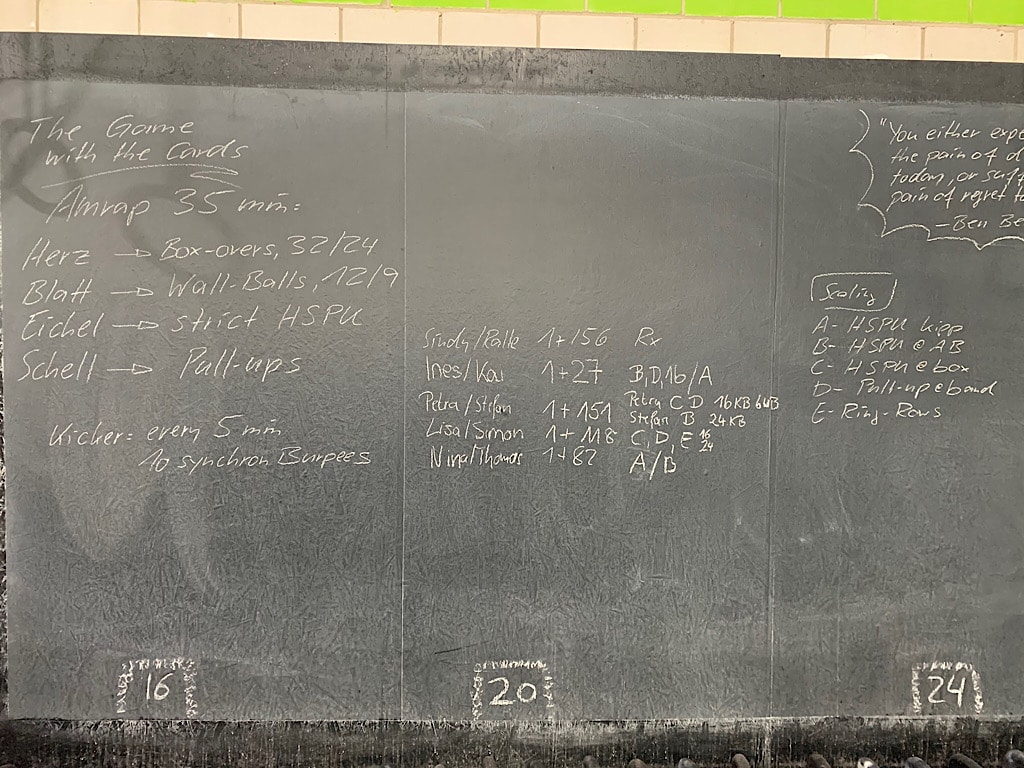 The Game
with the Cards
Amrap 35 min:
Herz → Box-overs, 32/24
Blatt → Wall-Balls, 12/9
Eichel → strict HSPU
Schell → Pull-ups
Kicker: every 5 min
10 synchron Burpees
16
Sindy/Kalle 1+156 Rx
Ines/Kai 1+27 B,D,16/A
Petra/Stefan 1+151 Petra C D 16KB 6WB
Stefan B 24KB
Lisa/Simon 1+118 C, D, E 16
24
Nina/Thomas 1+82 A/B
20
"You either expe
the pain of d
today, or suff
pain of regret to
- Ben Be
Scaling
A- HSPU kipp
B- HSPU @ AB
C- HSPU @ box
D- Pull-up @ band
E- Ring-Rows
24